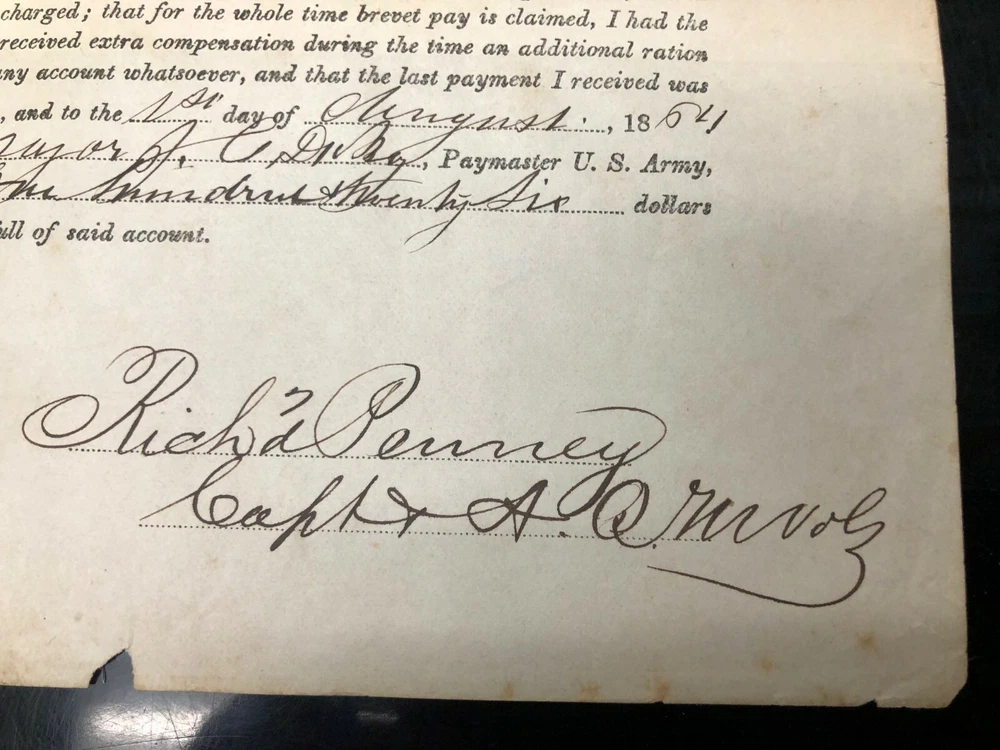 charged; that for the whole time brevet pay is claimed, I had the
received extra compensation during the time an additional ration
any account whatsoever, and that the last payment I received was
, and to the 1st day of August, 1864
Major J. C. , Paymaster U. S. Army,
One hundred & twenty six dollars
full of said account.
Rich'd Penney
Capt & A. Q. M Vols